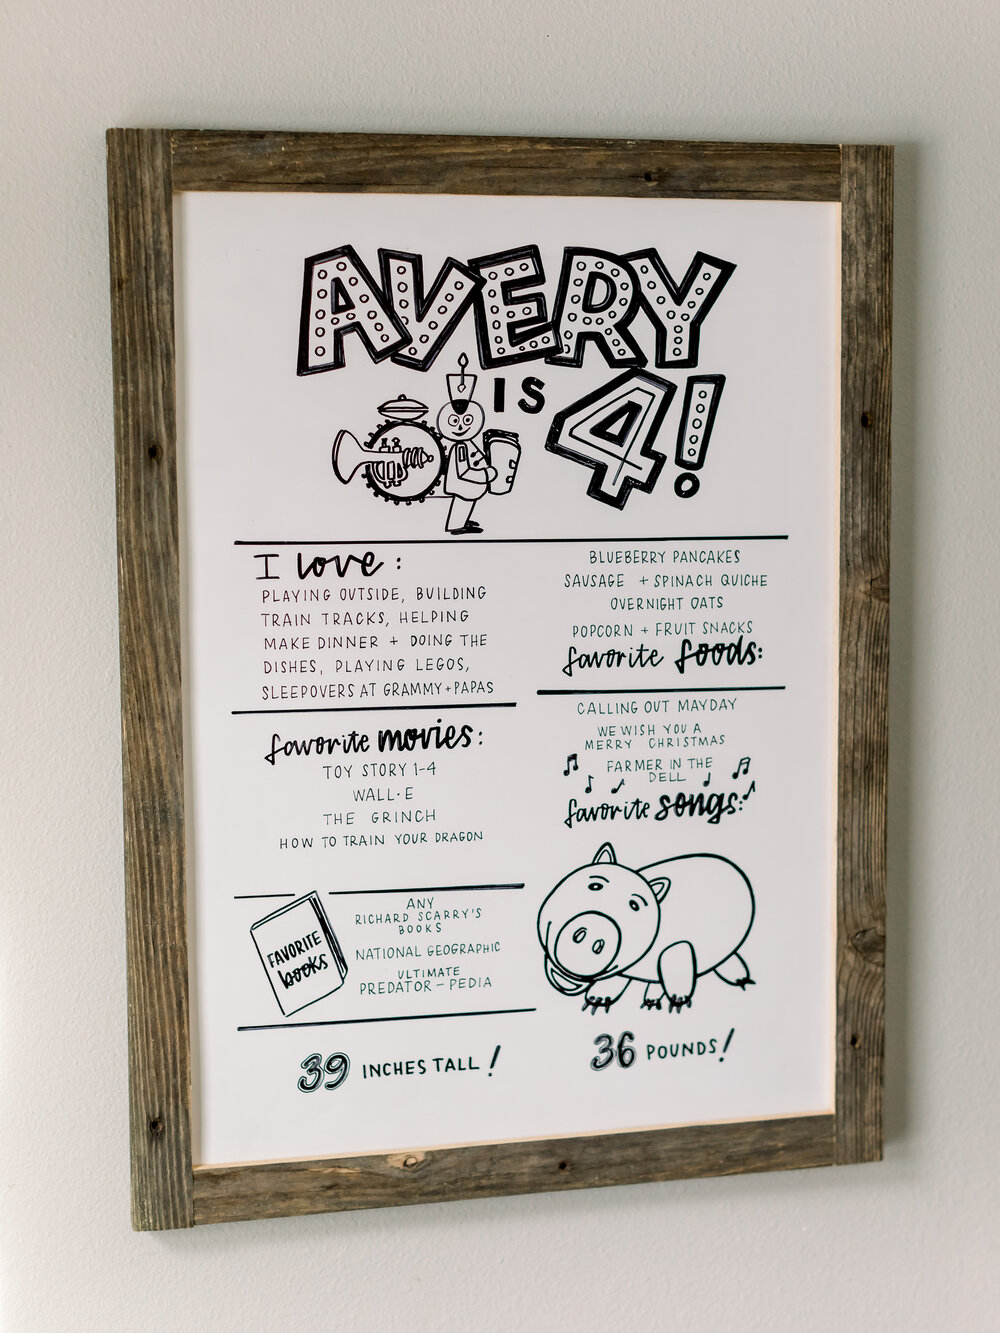 AVERY
IS 4!
I love:
PLAYING OUTSIDE, BUILDING
TRAIN TRACKS, HELPING
MAKE DINNER + DOING THE
DISHES, PLAYING LEGOS,
SLEEPOVERS AT GRAMMY+PAPAS
BLUEBERRY PANCAKES
SAUSAGE + SPINACH QUICHE
OVERNIGHT OATS
POPCORN + FRUIT SNACKS
favorite foods:
favorite movies:
TOY STORY 1-4
WALL·E
THE GRINCH
HOW TO TRAIN YOUR DRAGON
CALLING OUT MAYDAY
WE WISH YOU A
MERRY CHRISTMAS
FARMER IN THE
DELL
favorite songs:
FAVORITE
books
ANY
RICHARD SCARRY'S
BOOKS
NATIONAL GEOGRAPHIC
ULTIMATE
PREDATOR-PEDIA
39 INCHES TALL!
36 POUNDS!